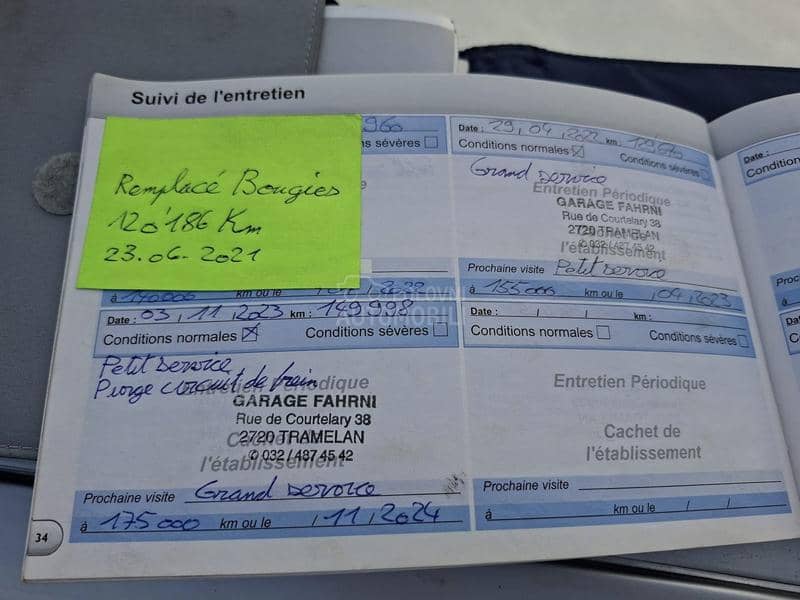 Suivi de l'entretien
Remplacé Bougies
120'186 Km
23.06.2021
960
ns sévères
à 140.000 km ou le
Date : 29, 04, 2022 km :
Conditions normales
Conditions sévères
Grand service
Entretien Périodique
GARAGE FAHRNI
Rue de Courtelary 38
2720 TRAMELAN
✆ 032 / 487 45 42
Cachet de
l'établissement
Prochaine visite Petit service
à 155000 km ou le , 04, 2023
Date : 03, 11, 2023 km : 149'998
Conditions normales
Conditions sévères
Petit service
Purge circuit de frein
Entretien Périodique
GARAGE FAHRNI
Rue de Courtelary 38
2720 TRAMELAN
✆ 032 / 487 45 42
Cachet de
l'établissement
Prochaine visite Grand service
à 175000 km ou le / 11, 2024
Date : / / km :
Conditions normales
Conditions sévères
Entretien Périodique
Cachet de
l'établissement
Prochaine visite
à km ou le / /
34
Date :
Conditions
à
AUTOMOBILI